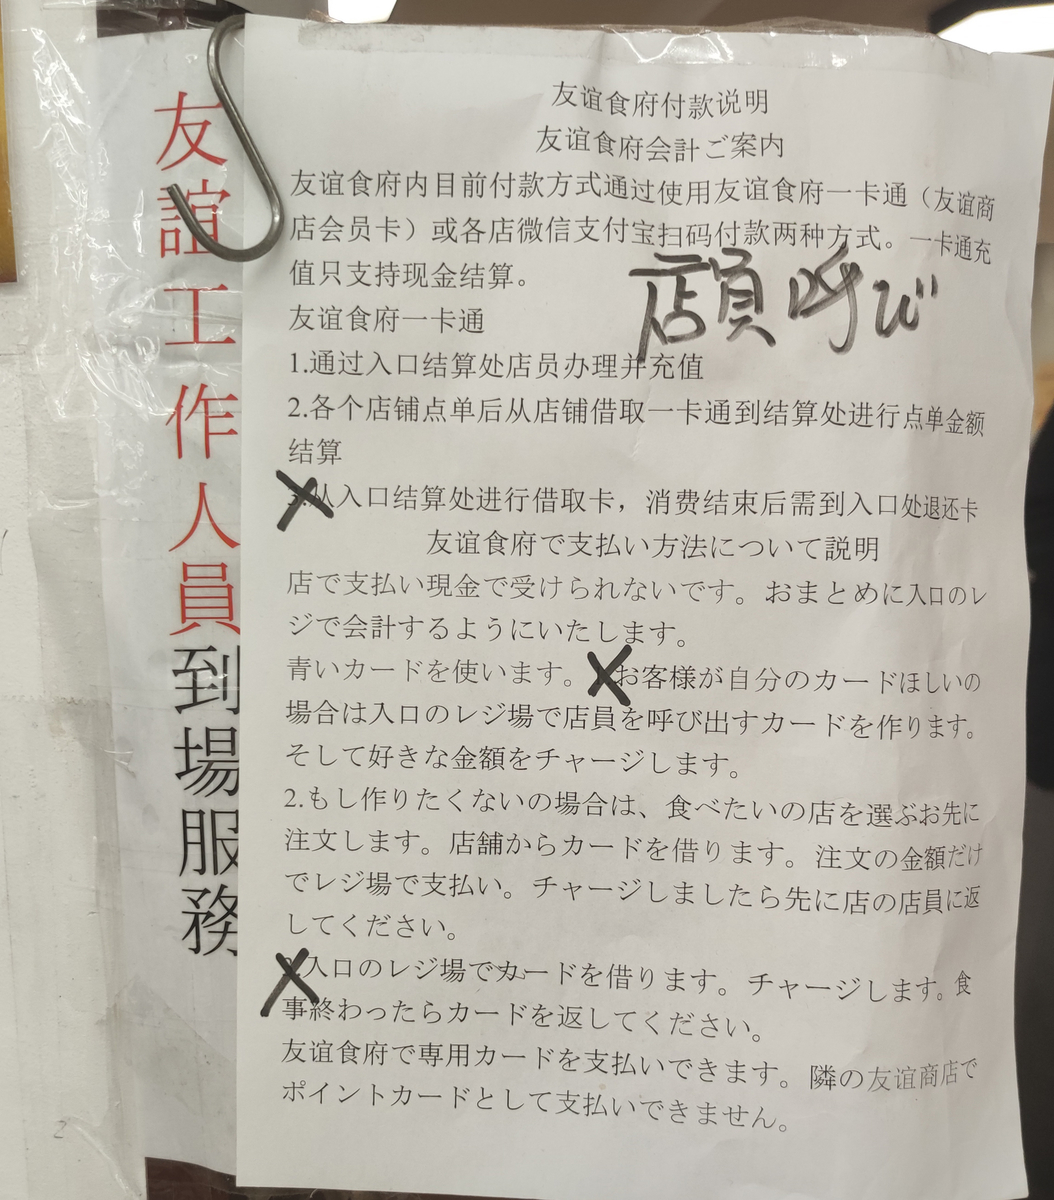 友誼工作人員到場服務
友谊食府付款说明
友谊食府会計ご案内
友谊食府内目前付款方式通过使用友谊食府一卡通（友谊商
店会员卡）或各店微信支付宝扫码付款两种方式。一卡通充
值只支持现金结算。
店員呼び
友谊食府一卡通
1.通过入口结算处店员办理并充值
2.各个店铺点单后从店铺借取一卡通到结算处进行点单金额
结算
从入口结算处进行借取卡，消费结束后需到入口处退还卡
友谊食府で支払い方法について説明
店で支払い現金で受けられないです。おまとめに入口のレ
ジで会計するようにいたします。
青いカードを使います。お客様が自分のカードほしいの
場合は入口のレジ場で店員を呼び出すカードを作ります。
そして好きな金額をチャージします。
2.もし作りたくないの場合は、食べたいの店を選ぶお先に
注文します。店舗からカードを借ります。注文の金額だけ
でレジ場で支払い。チャージしましたら先に店の店員に返
してください。
入口のレジ場でカードを借ります。チャージします。食
事終わったらカードを返してください。
友谊食府で専用カードを支払いできます。隣の友谊商店で
ポイントカードとして支払いできません。
2